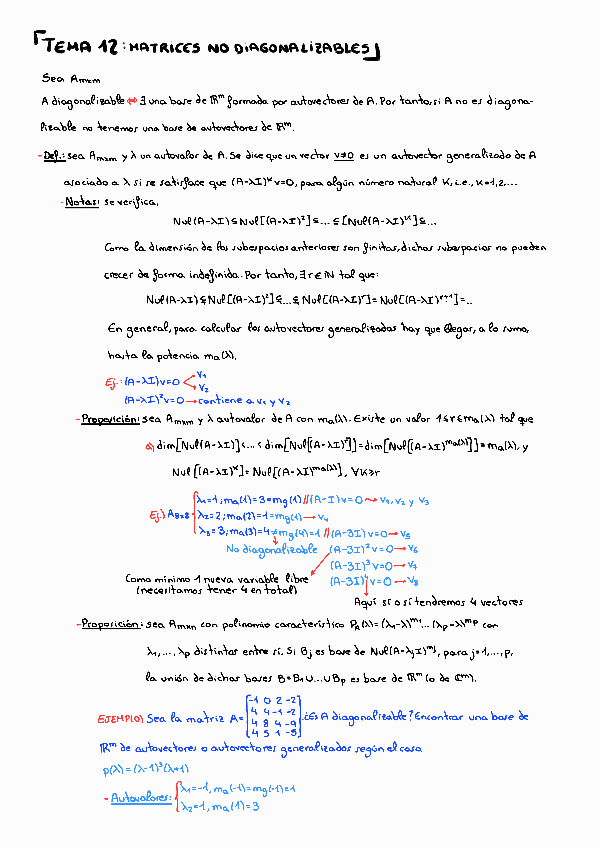 「TEMA 12: MATRICES NO DIAGONALIZABLES」
Sea Amxm
A diagonalizable ⇔ ∃ una base de ℝᵐ formada por autovectores de A. Por tanto, si A no es diagona-
lizable no tenemos una base de autovectores de ℝᵐ.
- Def.: sea Amxm y λ un autovalor de A. Se dice que un vector v≠0 es un autovector generalizado de A
asociado a λ si se satisface que (A-λI)ᴷv=0, para algún número natural K, i.e., K=1,2,...
- Notas: se verifica,
Nul(A-λI)⊆Nul[(A-λI)²]⊆...⊆[Nul(A-λI)ᴷ]⊆...
Como la dimensión de los subespacios anteriores son finitas, dichos subespacios no pueden
crecer de forma indefinida. Por tanto, ∃ r∈ℕ tal que:
Nul(A-λI)⊊Nul[(A-λI)²]⊊...⊊Nul[(A-λI)ʳ]=Nul[(A-λI)ʳ⁺¹]=..
En general, para calcular los autovectores generalizados hay que llegar, a lo sumo,
hasta la potencia ma(λ).
Ej.: (A-λI)v=0 < v₁
v₂
(A-λI)²v=0→contiene a v₁ y v₂
- Proposición: sea Amxm y λ autovalor de A con ma(λ). Existe un valor 1≤r≤ma(λ) tal que
a) dim[Nul(A-λI)]<...<dim[Nul[(A-λI)ʳ]]=dim[Nul[(A-λI)^ma(λ)]]=ma(λ), y
Nul[(A-λI)ᴷ]=Nul[(A-λI)^ma(λ)], ∀K≥r
λ₁=1; ma(1)=3=mg(1)//(A-I)v=0 → v₁, v₂ y v₃
Ej.) A8x8 λ₂=2; ma(2)=1=mg(1)→v₄
λ₃=3; ma(3)=4≠mg(4)=1 //(A-3I)v=0→v₅
No diagonalizable (A-3I)²v=0→v₆
(A-3I)³v=0→v₇
Como mínimo 1 nueva variable libre (A-3I)⁴v=0→v₈
(necesitamos tener 4 en total)
Aquí sí o sí tendremos 4 vectores
- Proposición: sea Amxm con polinomio característico PA(λ)=(λ₁-λ)^m₁...(λp-λ)^mp con
λ₁,..., λp distintas entre sí. Si Bj es base de Nul(A-λjI)^mj, para j=1,...,p,
la unión de dichas bases B=B₁∪...∪Bp es base de ℝᵐ (o de ℂᵐ).
EJEMPLO) Sea la matriz A=[-1 0 2 -2
4 4 -1 -2
4 8 4 -9
4 5 1 -5]. ¿Es A diagonalizable? Encontrar una base de
ℝᵐ de autovectores o autovectores generalizados según el caso
p(λ)=(λ-1)³(λ+1)
- Autovalores: λ₁=-1, ma(-1)=mg(-1)=1
λ₂=1, ma(1)=3